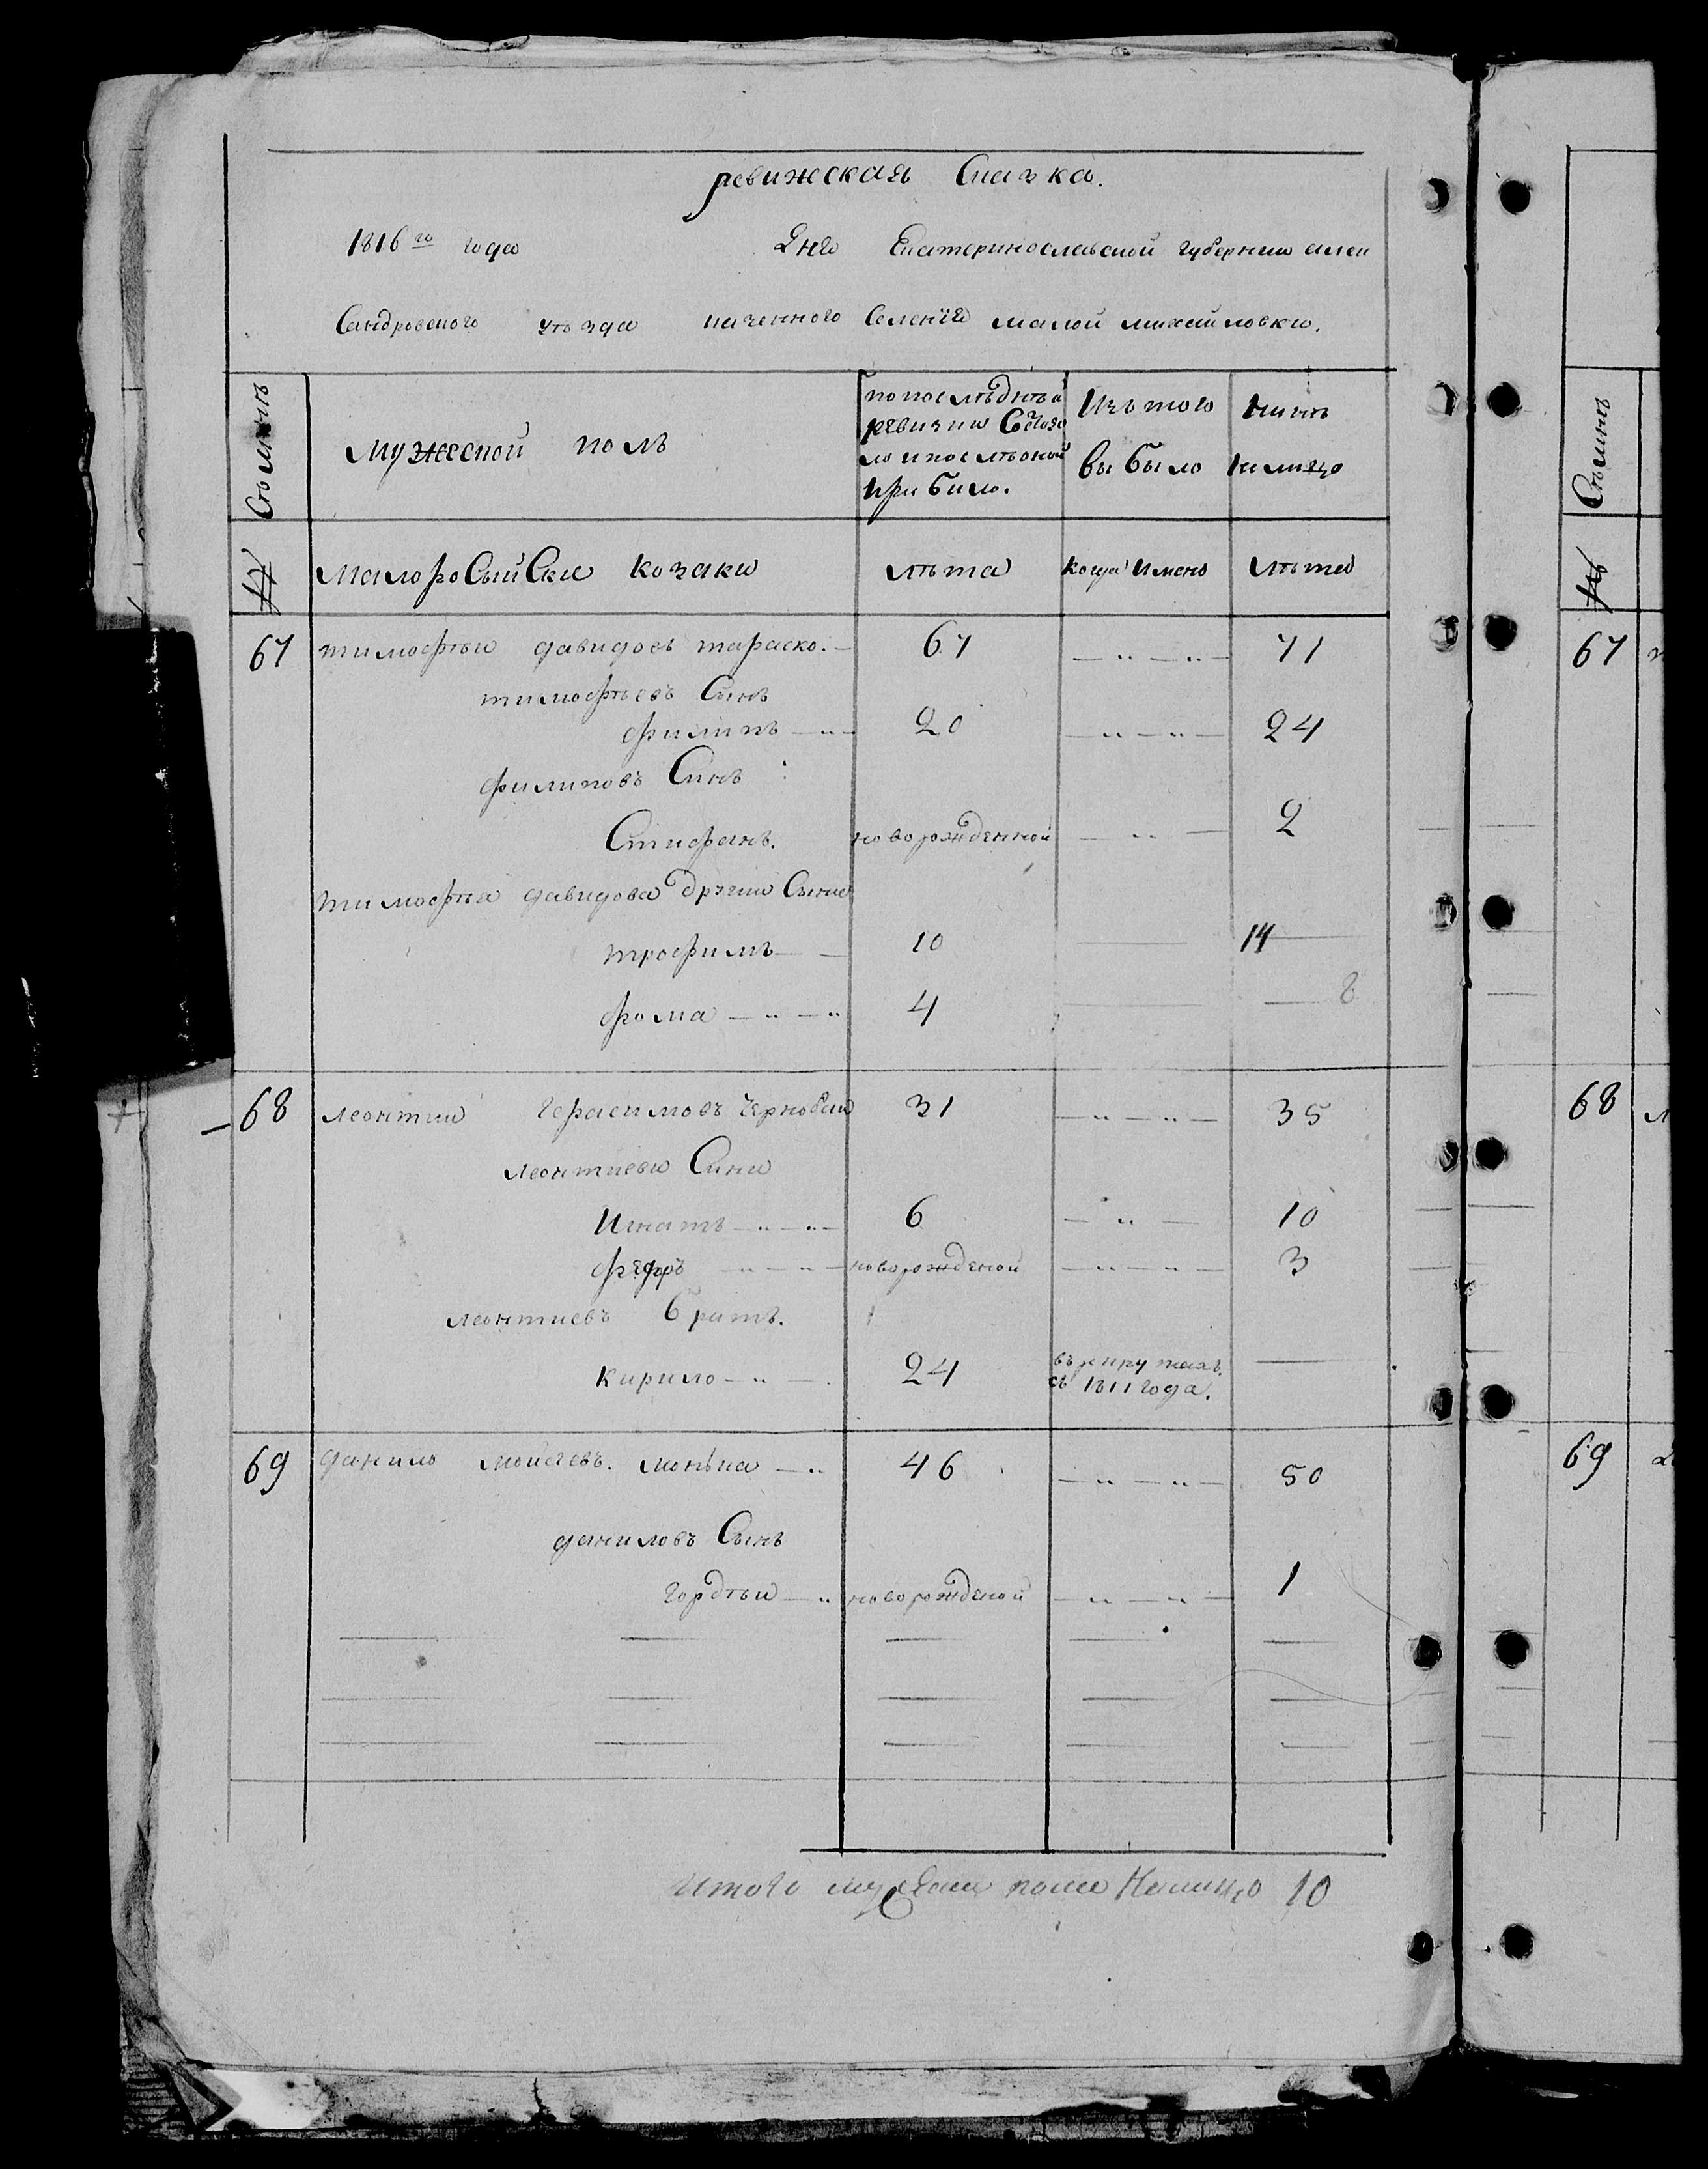 ревижская Сказка.
1816го года Дня Екатеринославской губернии алек
Сандровского уѣзда казенного Селения малой михайловки.
Семьи
мужеской полъ
по последнѣй
ревизии Состоя
ло и после оной
прибило.
Изъ того
выбыло
нинѣ
налицо
№
малоросыйСкие козаки
лѣта
когда имено
лѣта
67 тимофѣи давидовъ тараско. 67 71
тимофѣевъ Сынъ
филипъ 20 24
филиповъ Синъ
Стифанъ. новорожденной 2
тимофѣя давидова другии Сыни
трофимъ 10 14
фома 4 8
68 леонтии герасимовъ чернобаи 31 35
леонтиеви Сини
Игнатъ 6 10
новорожденой 3
леонтиевъ братъ.
кирило 24 въ рекрутахъ
съ 1811 года.
69 данило моисеевъ. 46 50
даниловъ Сынъ
гордѣи новорожденой 1
Итого муж пола Налицо 10
Семьи
№
67
68
69